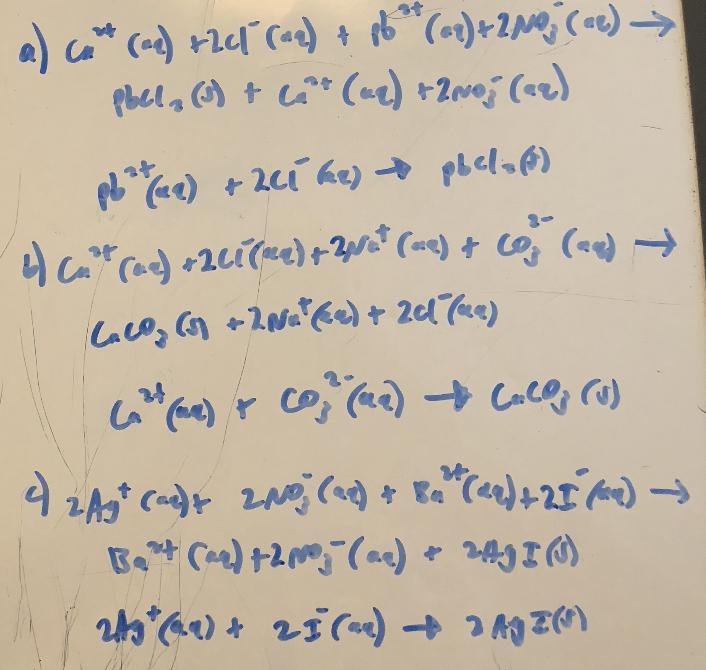 a) Ca²⁺ (aq) + 2Cl⁻ (aq) + pb²⁺ (aq) + 2NO₃⁻ (aq) →
pbcl₂ (s) + Ca²⁺ (aq) + 2NO₃⁻ (aq)
pb²⁺ (aq) + 2Cl⁻ (aq) → pbcl₂ (s)
b) Ca²⁺ (aq) + 2Cl⁻ (aq) + 2Na⁺ (aq) + CO₃²⁻ (aq) →
CaCO₃ (s) + 2Na⁺ (aq) + 2Cl⁻ (aq)
Ca²⁺ (aq) + CO₃²⁻ (aq) → CaCO₃ (s)
c) 2Ag⁺ (aq) + 2NO₃⁻ (aq) + Ba²⁺ (aq) + 2I⁻ (aq) →
Ba²⁺ (aq) + 2NO₃⁻ (aq) + 2AgI (s)
2Ag⁺ (aq) + 2I⁻ (aq) → 2AgI (s)